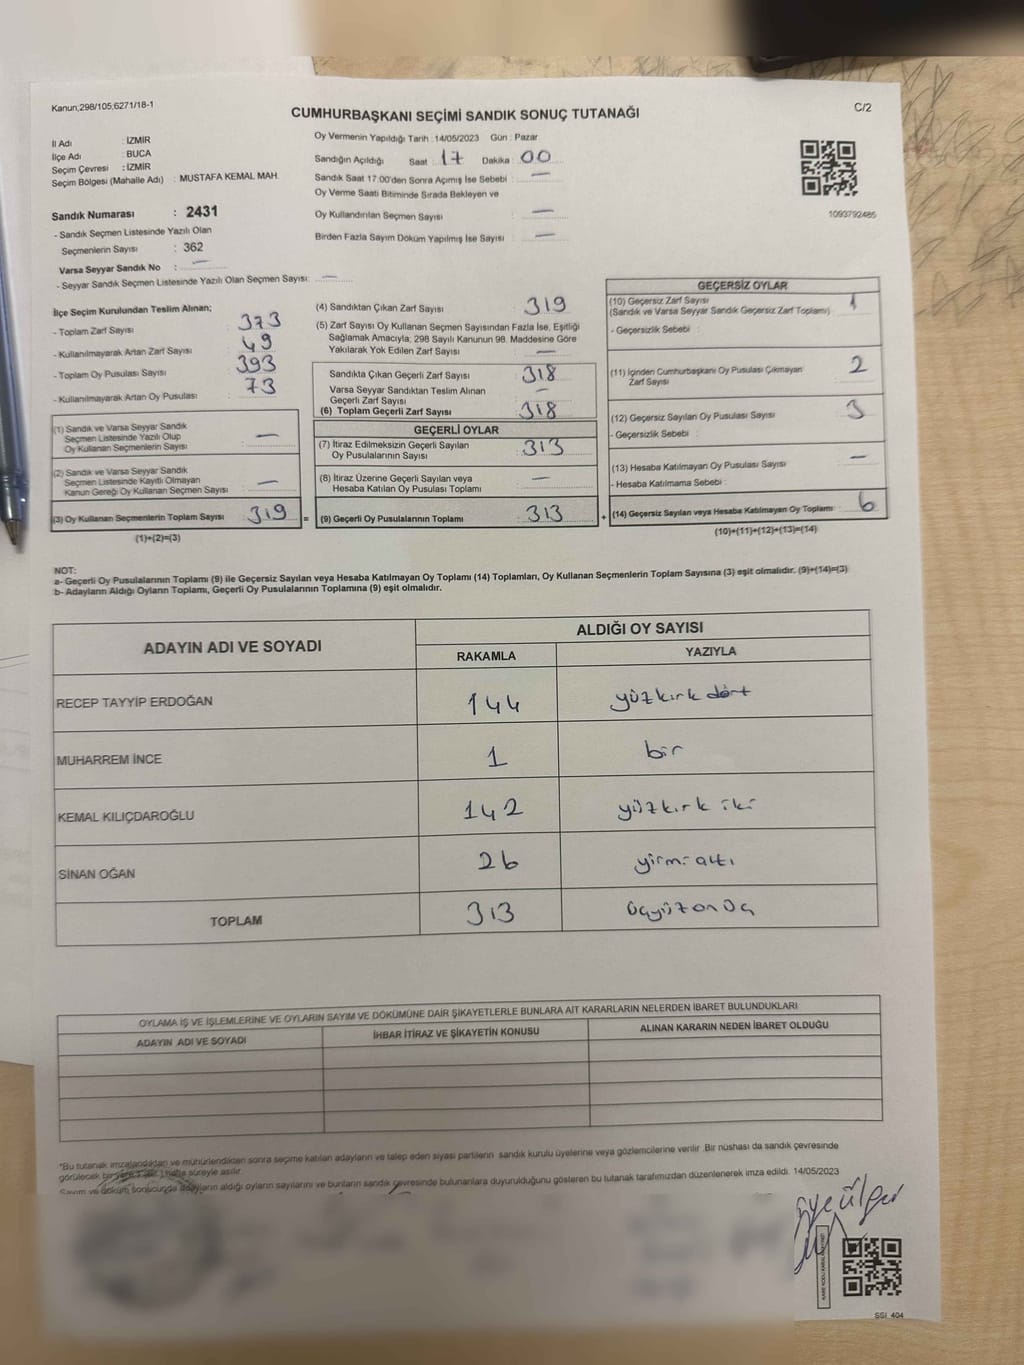 Kanun;298/105;6271/18-1
CUMHURBAŞKANI SEÇİMİ SANDIK SONUÇ TUTANAĞI
C/2
İl Adı : İZMİR
İlçe Adı : BUCA
Seçim Çevresi : İZMİR
Seçim Bölgesi (Mahalle Adı) : MUSTAFA KEMAL MAH.
Oy Vermenin Yapıldığı Tarih :14/05/2023 Gün : Pazar
Sandığın Açıldığı Saat : 17 Dakika : 00
Sandık Saat 17:00'den Sonra Açımış İse Sebebi : —
Oy Verme Saati Bitiminde Sırada Bekleyen ve
Oy Kullandırılan Seçmen Sayısı : —
Birden Fazla Sayım Döküm Yapılmış İse Sayısı : —
1093792485
Sandık Numarası : 2431
- Sandık Seçmen Listesinde Yazılı Olan
Seçmenlerin Sayısı : 362
Varsa Seyyar Sandık No : —
- Seyyar Sandık Seçmen Listesinde Yazılı Olan Seçmen Sayısı: —
İlçe Seçim Kurulundan Teslim Alınan;
- Toplam Zarf Sayısı : 373
- Kullanılmayarak Artan Zarf Sayısı : 49
- Toplam Oy Pusulası Sayısı : 393
- Kullanılmayarak Artan Oy Pusulası : 73
(1) Sandık ve Varsa Seyyar Sandık
Seçmen Listesinde Yazılı Olup
Oy Kullanan Seçmenlerin Sayısı : —
(2) Sandık ve Varsa Seyyar Sandık
Seçmen Listesinde Kayıtlı Olmayan
Kanun Gereği Oy Kullanan Seçmen Sayısı : —
(3) Oy Kullanan Seçmenlerin Toplam Sayısı : 319
(1)+(2)=(3)
(4) Sandıktan Çıkan Zarf Sayısı : 319
(5) Zarf Sayısı Oy Kullanan Seçmen Sayısından Fazla İse, Eşitliği
Sağlamak Amacıyla; 298 Sayılı Kanunun 98. Maddesine Göre
Yakılarak Yok Edilen Zarf Sayısı : —
Sandıkta Çıkan Geçerli Zarf Sayısı : 318
Varsa Seyyar Sandıktan Teslim Alınan
Geçerli Zarf Sayısı : —
(6) Toplam Geçerli Zarf Sayısı : 318
GEÇERLİ OYLAR
(7) İtiraz Edilmeksizin Geçerli Sayılan
Oy Pusulalarının Sayısı : 313
(8) İtiraz Üzerine Geçerli Sayılan veya
Hesaba Katılan Oy Pusulası Toplamı : —
= (9) Geçerli Oy Pusulalarının Toplamı : 313 +
GEÇERSİZ OYLAR
(10) Geçersiz Zarf Sayısı
(Sandık ve Varsa Seyyar Sandık Geçersiz Zarf Toplamı) : 1
- Geçersizlik Sebebi :
(11) İçinden Cumhurbaşkanı Oy Pusulası Çıkmayan
Zarf Sayısı : 2
(12) Geçersiz Sayılan Oy Pusulası Sayısı : 3
- Geçersizlik Sebebi :
(13) Hesaba Katılmayan Oy Pusulası Sayısı : —
- Hesaba Katılmama Sebebi :
(14) Geçersiz Sayılan veya Hesaba Katılmayan Oy Toplamı : 6
(10)+(11)+(12)+(13)=(14)
NOT:
a- Geçerli Oy Pusulalarının Toplamı (9) ile Geçersiz Sayılan veya Hesaba Katılmayan Oy Toplamı (14) Toplamları, Oy Kullanan Seçmenlerin Toplam Sayısına (3) eşit olmalıdır. (9)+(14)=(3)
b- Adayların Aldığı Oyların Toplamı, Geçerli Oy Pusulalarının Toplamına (9) eşit olmalıdır.
ADAYIN ADI VE SOYADI
ALDIĞI OY SAYISI
RAKAMLA YAZIYLA
RECEP TAYYİP ERDOĞAN 144 yüzkırk dört
MUHARREM İNCE 1 bir
KEMAL KILIÇDAROĞLU 142 yüzkırk iki
SİNAN OĞAN 26 yirmi altı
TOPLAM 313 üçyüz on üç
OYLAMA İŞ VE İŞLEMLERİNE VE OYLARIN SAYIM VE DÖKÜMÜNE DAİR ŞİKAYETLERLE BUNLARA AİT KARARLARIN NELERDEN İBARET BULUNDUKLARI
ADAYIN ADI VE SOYADI
İHBAR İTİRAZ VE ŞİKAYETİN KONUSU
ALINAN KARARIN NEDEN İBARET OLDUĞU
*Bu tutanak imzalandıktan ve mühürlendikten sonra seçime katılan adayların ve talep eden siyasi partilerin sandık kurulu üyelerine veya gözlemcilerine verilir .Bir nüshası da sandık çevresinde
görülecek bir yere 1 (bir) hafta süreyle asılır.
Sayım ve döküm sonucunda adayların aldığı oyların sayılarını ve bunların sandık çevresinde bulunanlara duyurulduğunu gösteren bu tutanak tarafımızdan düzenlenerek imza edildi. 14/05/2023
SSI_404